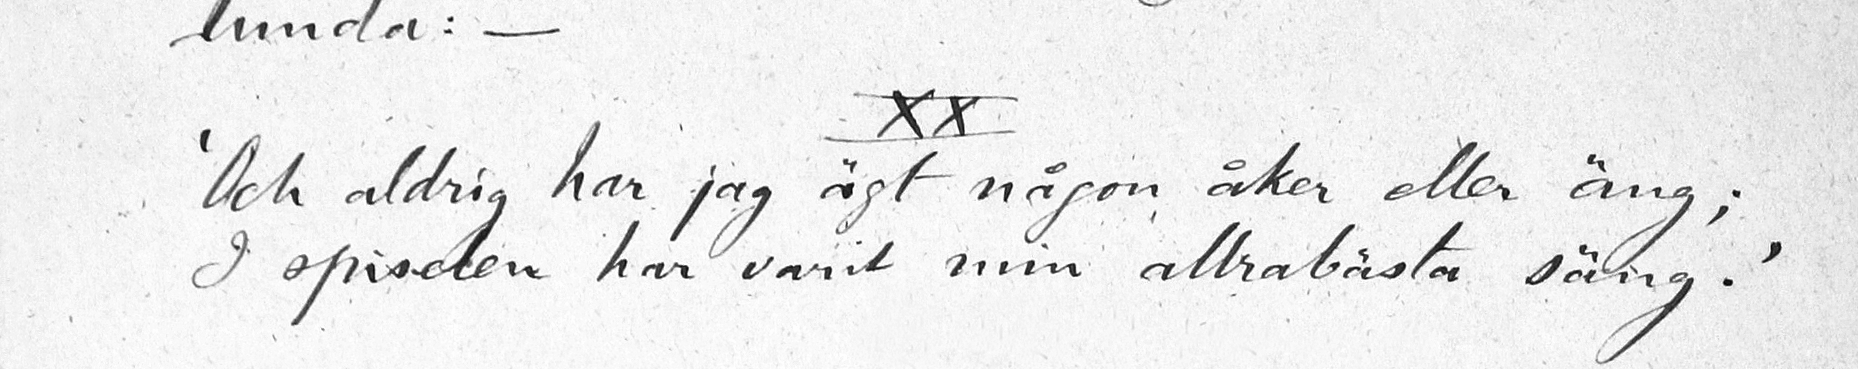 lunda: —
XX
'Och aldrig har jag ägt någon åker eller äng;
I spiselen har varit min allrabästa säng.'